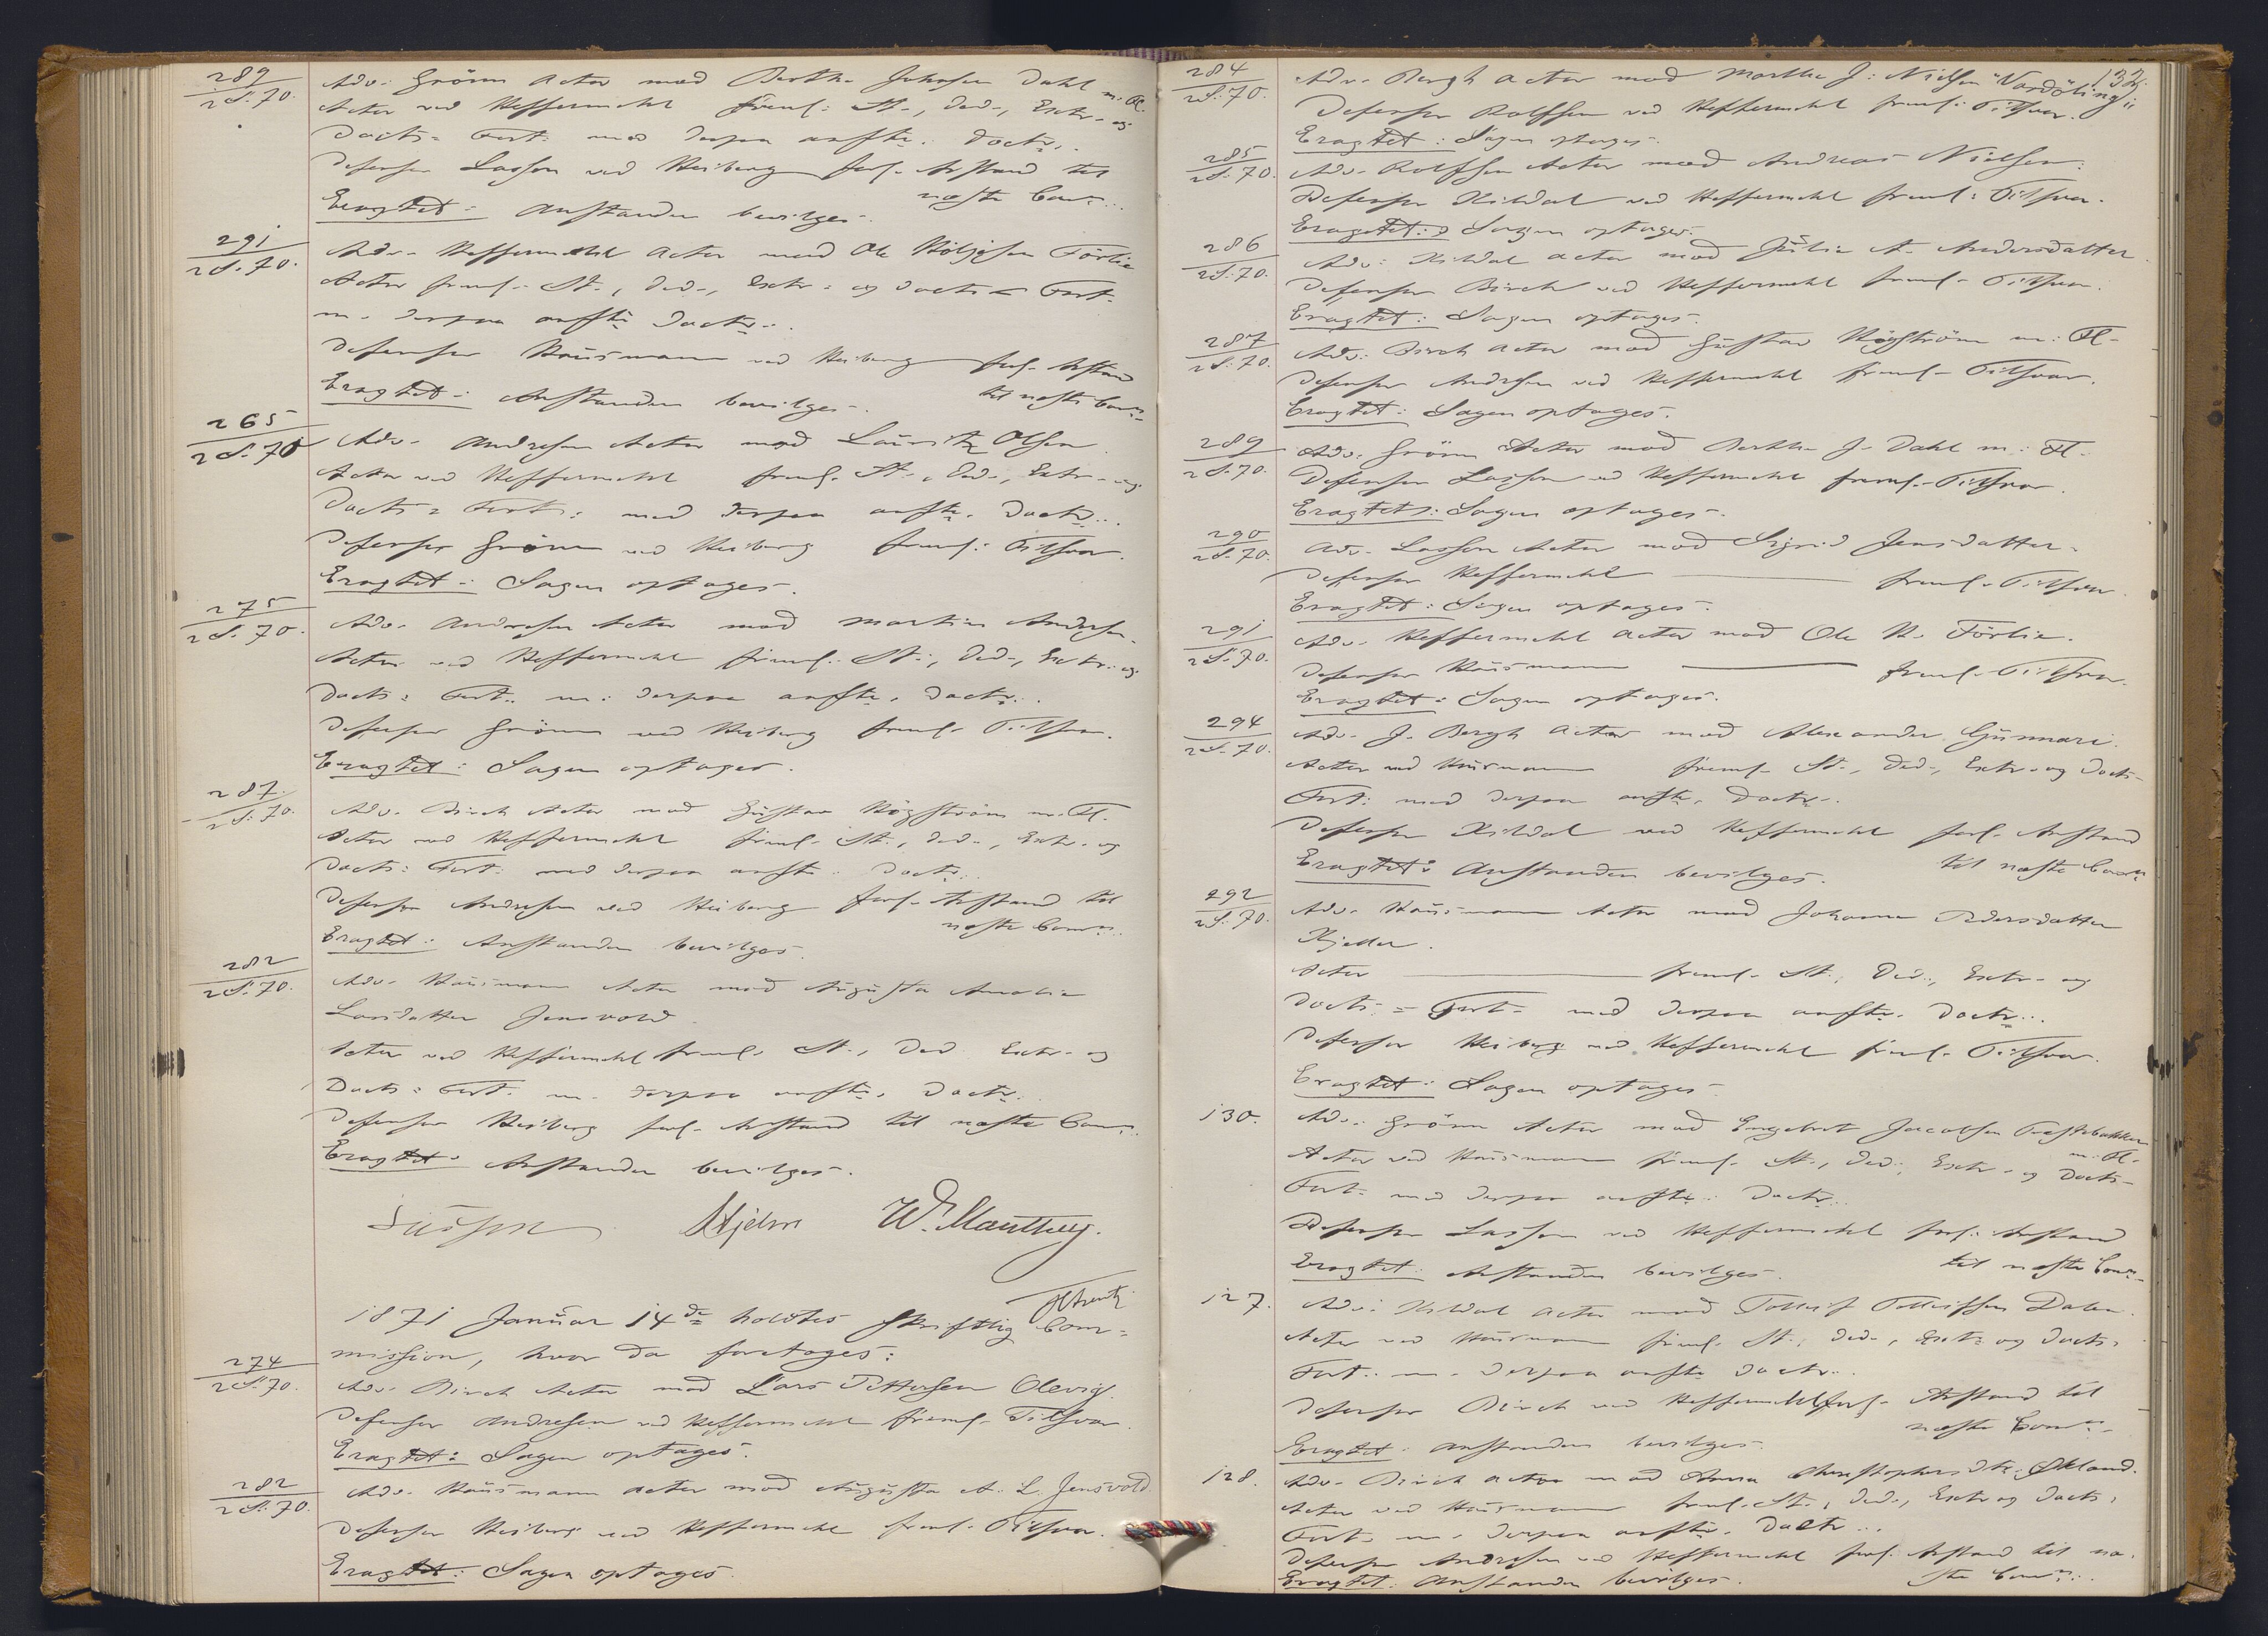 289
2 S. 70.
Adv. Grönn Actor mod Berthe Johnsen Dahl m. Fl.
Actor ved Heffermehl freml. St., Ded., Extr. og
Docts. Fort. med derpaa anfte. Docter.
Defensor Lasson ved Heiberg forl. Anstand til
næste Comn.
Eragtet: Anstanden bevilges.
291
2 S. 70.
Adv. Heffermehl Actor mod Ole Förlie
Actor freml. St., Ded., Extr. og Docts. Fort.
m. derpaa anfte Docter.
Defensor Hausmann ved Heiberg forl. Anstand
til næste Comn.
Eragtet: Anstanden bevilges.
265
2 S. 70
Adv. Andresen Actor mod Lauritz Olsen.
Actor ved Heffermehl freml. St., Ded., Extr. og
Docts. Fort. med derpaa anfte. Docter.
Defensor Grönn ved Heiberg freml. Tilsvar.
Eragtet: Sagen optages.
275
2 S. 70.
Adv. Andresen Actor mod Martin Andersen.
Actor ved Heffermehl freml. St., Ded., Extr. og
Docts. Fort. m. derpaa anfte. Docter.
Defensor Grönn ved Heiberg freml. Tilsvar.
Eragtet: Sagen optages.
287.
2 S. 70.
Adv. Birch Actor mod Gustav Högström m. Fl.
Actor ved Heffermehl freml. St., Ded., Extr. og
Docts. Fort. med derpaa anfte. Docter.
Defensor Andresen ved Heiberg forl. Anstand til
næste Comn.
Eragtet: Anstanden bevilges.
282
2 S. 70.
Adv. Hausmann Actor mod Augusta Amalie
Larsdatter Jensvold.
Actor ved Heffermehl freml. St., Ded. Extr. og
Docts. Fort. m. derpaa anfte. Docter.
Defensor Heiberg forl. Anstand til næste Comn.
Eragtet: Anstanden bevilges.
Hjelm W. Manthey.
1871 Januar 14de holdtes skriftlig Com-
mission, hvor da foretages:
274
2 S. 70.
Adv. Birch Actor mod Lars Pettersen Olevig.
Defensor Andresen ved Heffermehl freml. Tilsvar.
Eragtet: Sagen optages.
282
2 S. 70.
Adv. Hausmann Actor mod Augusta A. L. Jensvold.
Defensor Heiberg ved Heffermehl freml. Tilsvar.
Eragtet: Sagen optages.
132.
284
2 S. 70.
Adv. Bergh Actor mod Marthe J. Nielsen "Vardöling"
Defensor Rolffsen ved Heffermehl freml. Tilsvar.
Eragtet: Sagen optages.
285
2 S. 70.
Adv. Rolffsen Actor mod Andreas Nielsen.
Defensor Kildal ved Heffermehl freml. Tilsvar.
Eragtet: Sagen optages.
286
2 S. 70.
Adv. Kildal Actor mod Julie A. Andersdatter.
Defensor Birch ved Heffermehl freml. Tilsvar.
Eragtet: Sagen optages.
287
2 S. 70.
Adv. Birch Actor mod Gustav Högström m. Fl.
Defensor Andresen ved Heffermehl freml. Tilsvar.
Eragtet: Sagen optages.
289
2 S. 70.
Adv. Grönn Actor mod Berthe J. Dahl m. Fl.
Defensor Lasson ved Heffermehl freml. Tilsvar.
Eragtet: Sagen optages.
290
2 S. 70.
Adv. Lasson Actor mod Sigrid Jensdatter.
Defensor Heffermehl — freml. Tilsvar.
Eragtet: Sagen optages.
291
2 S. 70.
Adv. Heffermehl Actor mod Ole H. Förlie.
Defensor Hausmann — freml. Tilsvar.
Eragtet: Sagen optages.
294
2 S. 70.
Adv. J. Bergh Actor mod Alexander Gunnari.
Actor ved Hausmann freml. St., Ded., Extr. og Docts.
Fort. med derpaa anfte. Docter.
Defensor Kildal ved Heffermehl forl. Anstand
til næste Comn.
Eragtet: Anstanden bevilges.
292
2 S. 70.
Adv. Hausmann Actor mod Johanne Pedersdatter
Kjeller.
Actor — freml. St., Ded., Extr. og
Docts. Fort. med derpaa anfte. Docter.
Defensor Heiberg ved Heffermehl freml. Tilsvar.
Eragtet: Sagen optages.
130.
Adv. Grönn Actor mod Engebret Jacobsen
m. Fl.
Actor ved Hausmann freml. St., Ded., Extr. og Docts.
Fort. med derpaa anfte. Docter.
Defensor Lasson ved Heffermehl forl. Anstand
til næste Comn.
Eragtet: Anstanden bevilges.
127.
Adv. Kildal Actor mod Tollef Tollefsen Dalen.
Actor ved Hausmann freml. St., Ded., Extr. og Docts.
Fort. m. derpaa anfte Docter.
Defensor Birch ved Heffermehl forl. Anstand til
næste Comn.
Eragtet: Anstanden bevilges.
128.
Adv. Birch Actor mod Anna Christophersdtr. Økland.
Actor ved Hausmann freml. St., Ded., Extr. og Docts.
Fort. m. derpaa anfte. Docter.
Defensor Andresen ved Heffermehl forl. Anstand til næ-
ste Comn.
Eragtet: Anstanden bevilges.